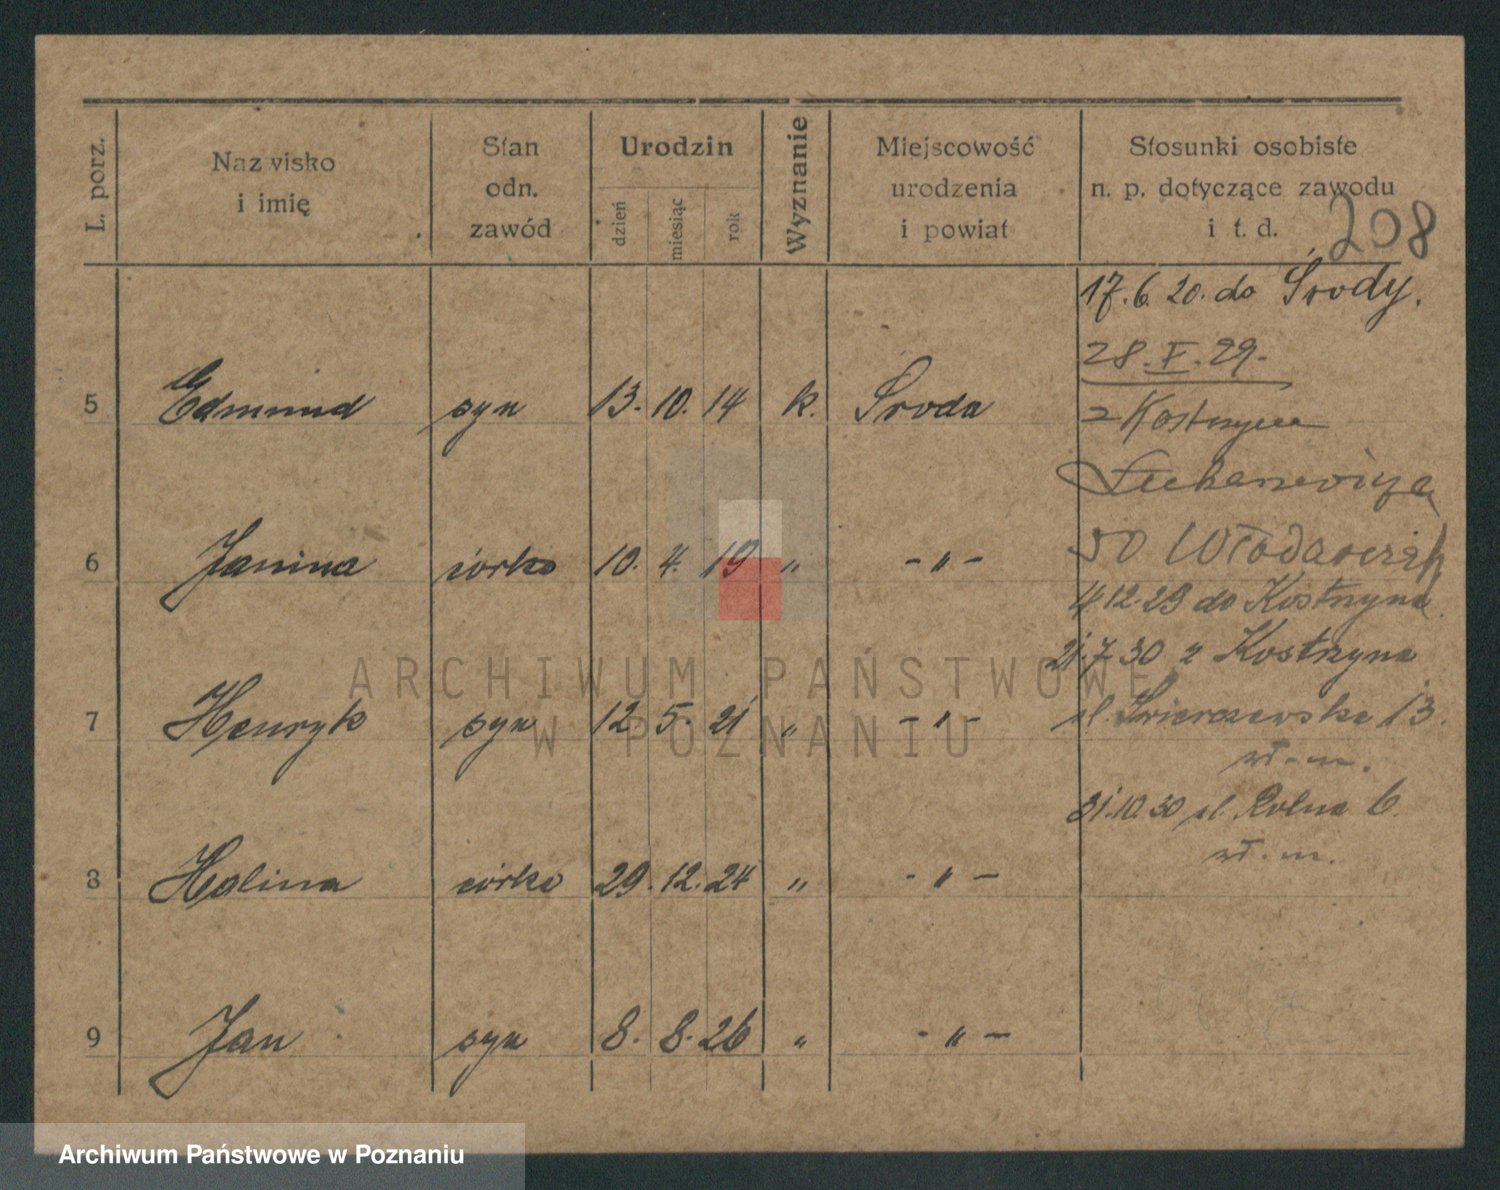 L. porz.
Nazwisko
i imię
Stan
odn.
zawód
Urodzin
dzień
miesiąc
rok
Wyznanie
Miejscowość
urodzenia
i powiat
Stosunki osobiste
n. p. dotyczące zawodu
i t. d.
208
17.6.20. do Środy.
28.X.29.
z Kostrzyna
5 Edmund syn 13. 10. 14 k. Środa
Włodarczak
6 Janina córka 10. 4. 19 „ - „ -
4.12.29 do Kostrzyna
21.7.30 z Kostrzyna
7 Henryk syn 12 5. 21 „ - „ -
ul. 13.
wł. m.
31.10.30 ul. Rolna 6.
wł. m.
8 Halina córka 29. 12. 24 „ - „ -
9 Jan syn 8. 8. 26 „ - „ -
ARCHIWUM PAŃSTWOWE
W POZNANIU
Archiwum Państwowe w Poznaniu